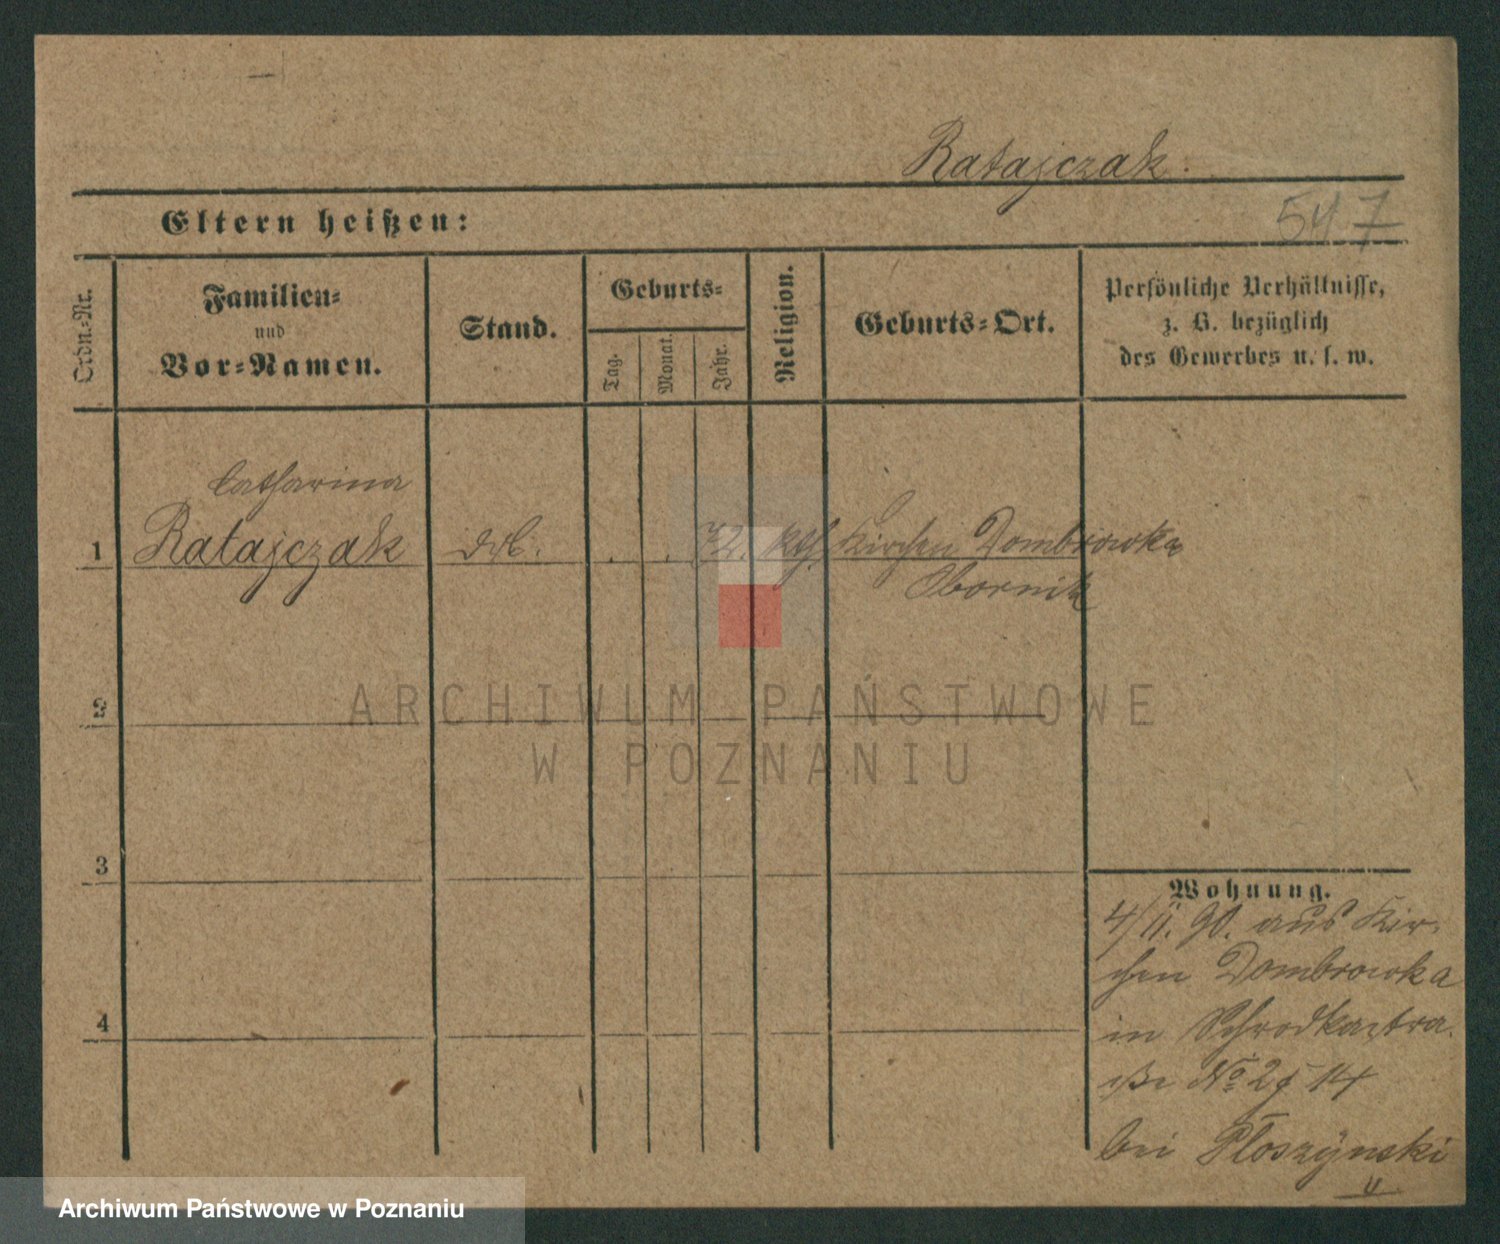 Ratajczak.
547
Eltern heißen:
Ordn.-Nr.
Familien-
und
Vor-Namen.
Stand.
Geburts-
Tag.
Monat.
Jahr.
Religion.
Geburts-Ort.
Persönliche Verhältnisse,
z. B. bezüglich
des Gewerbes u. s. w.
Catharina
1 Ratajczak . . 72. kth. Kirchen Dombrowka
Obornik
ARCHIWUM PAŃSTWOWE
W POZNANIU
2
3
4
Wohnung.
4/11. 90. aus Kir-
chen Dombrowka
in Schrodkastra-
ße No 14
bei Ploszynski
Archiwum Państwowe w Poznaniu